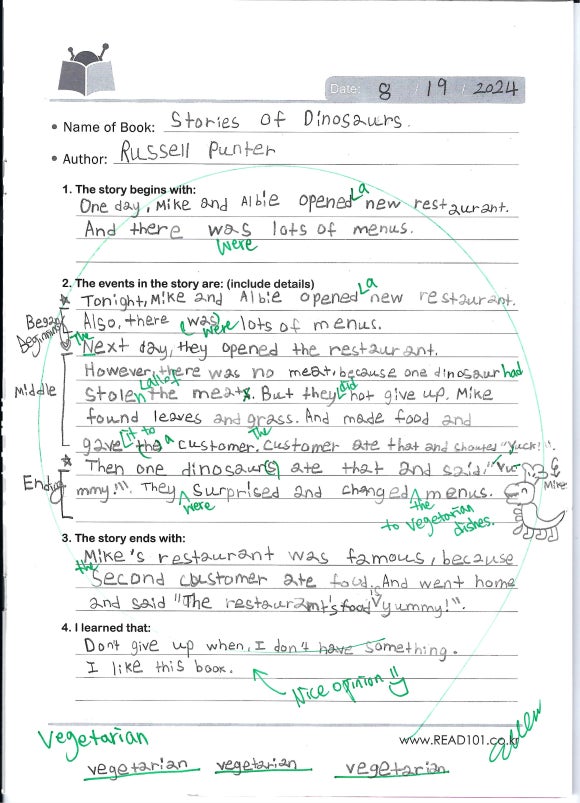 Date: 8 / 19 / 2024
• Name of Book: Stories of Dinosaurs.
• Author: Russell Punter
1. The story begins with:
a
One day, Mike and Albie opened new restaurant.
And there was lots of menus.
were
2. The events in the story are: (include details)
a
Tonight, Mike and Albie opened new restaurant.
Began
Beginning
Also, there (was) were lots of menus.
The
Next day, they opened the restaurant.
However, there was no meat, because one dinosaur had
Middle
all of did
stolen the meats. But they not give up. Mike
found leaves and grass. And made food and
it to a The
gave the customer. Customer ate that and shouted "Yuck!".
Then one dinosaur(s) ate that and said. "Yu-
Mike
Ending
mmy!". They surprised and changed menus.
were the
to vegetarian
dishes.
3. The story ends with:
Mike's restaurant was famous, because
the
second customer ate food. And went home
is
and said "The restauramt's food yummy!".
4. I learned that:
Don't give up when, I don't have something.
I like this book.
Nice opinion
Vegetarian
www.READ101.co.kr
vegetarian vegetarian vegetarian